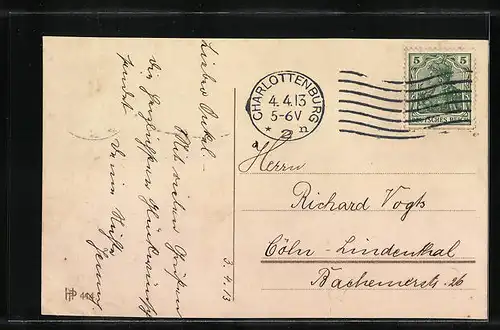 Lieber Onkel. –
Mit vielen Grüßen
die herzlichsten Glückwünsche
sendet
Deine Nichte
3.4.13
CHARLOTTENBURG
4.4.13
5-6V
* 2 n
5 5
DEUTSCHES REICH
Herrn
Richard Vogts
Cöln-Lindenthal
Bachemerstr. 26